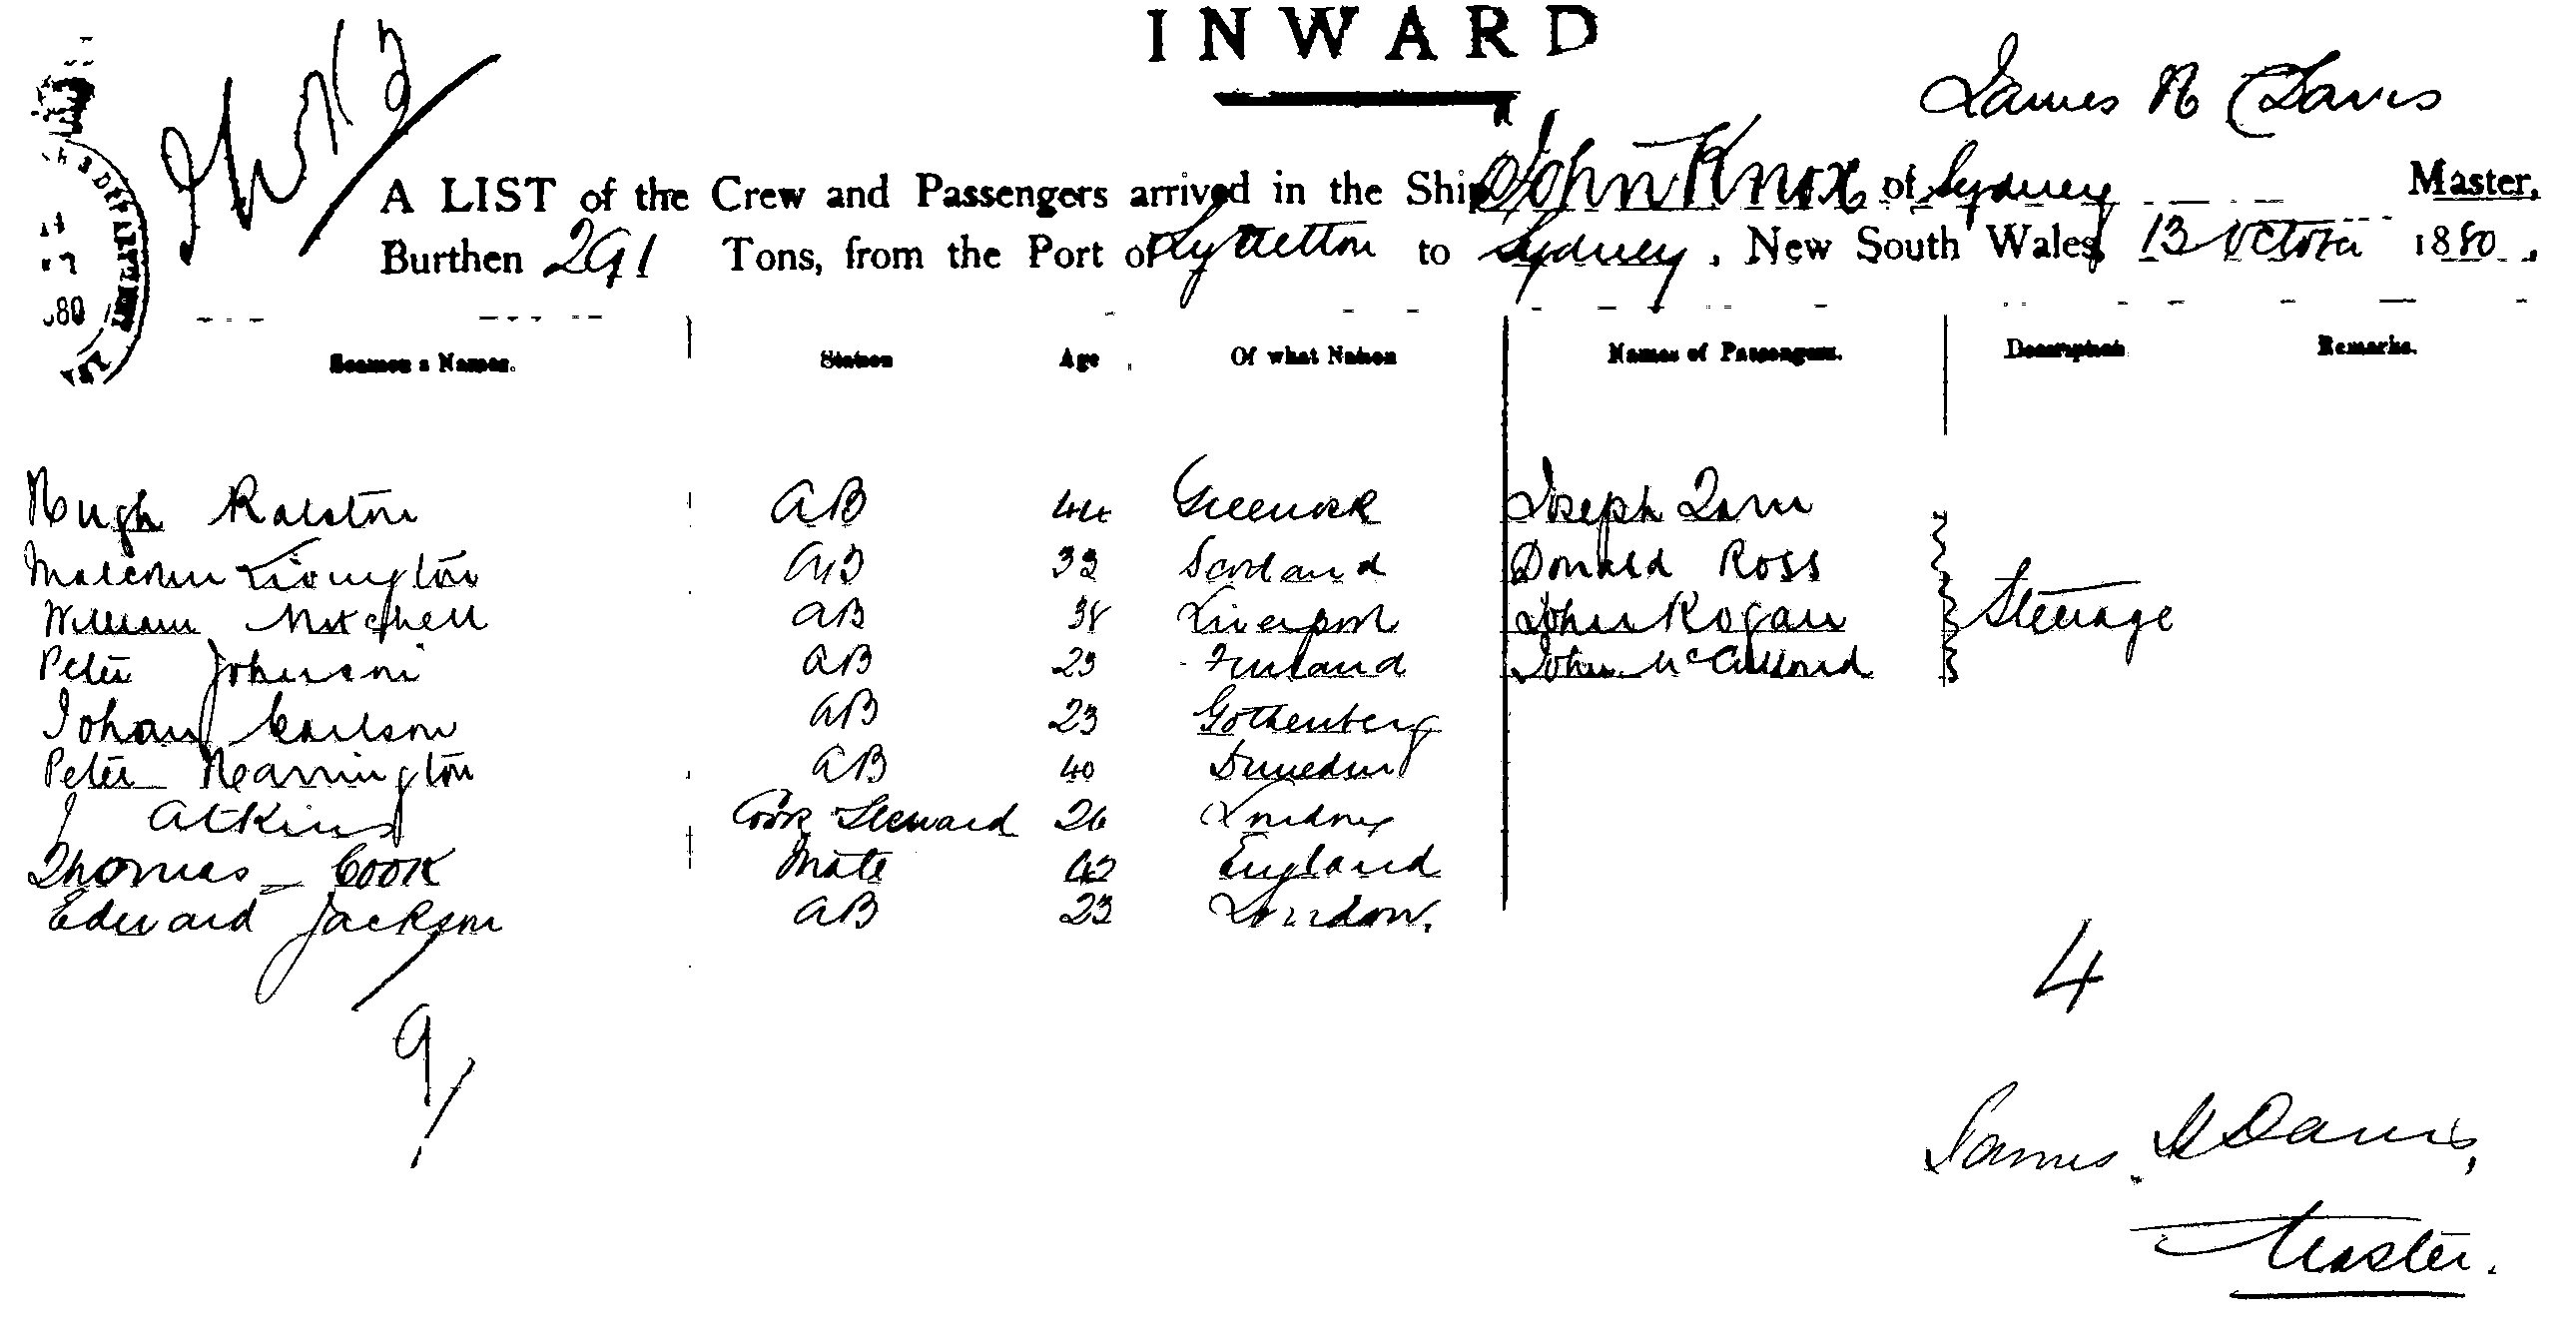 INWARD
James H Davis
A LIST of the Crew and Passengers arrived in the Ship John Knox of Sydney Master,
Burthen 291 Tons, from the Port of Lyttelton to Sydney, New South Wales 13 October 1880.
Seamen's Names. Station Age Of what Nation Names of Passengers. Description Remarks.
Hugh Ralston AB 44 Greenock Joseph
Malcolm Livington AB 33 Scotland Donald Ross
William Mitchell AB 38 Liverpool John Rogan Steerage
Peter Johnson AB 23 Finland John
Johan Carlson AB 23 Gothenberg
Peter Harrington AB 40 Dunedin
J Atkins Cook Steward 26 London
Thomas Cook Mate 42 England
Edward Jackson AB 23 London.
9/
4
James H Davis,
Master.